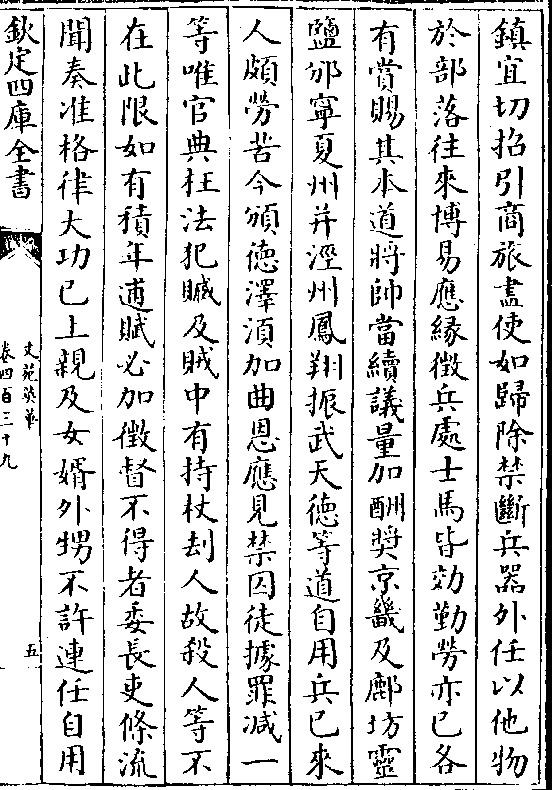 鎮宜切招引商旅盡使如歸除禁斷兵器外任以他物
於部落往來博易應緣徵兵處士馬皆効勤勞亦已各
有賞賜其本道將帥當續議量加酬奬京畿及鄜坊靈
鹽邠寧夏州并涇州鳳翔振武天德等道自用兵已來
人頗勞苦今頒德澤湏加曲恩應見禁囚徒據罪減一
等唯官典枉法犯贓及賊中有持杖刦人故殺人等不
在此限如有積年逋賦必加徵督不得者委長吏條流
聞奏准格律大功已上親及女婿外甥不許連任自用
欽定四庫全書
文苑英華
卷四百三十九
五